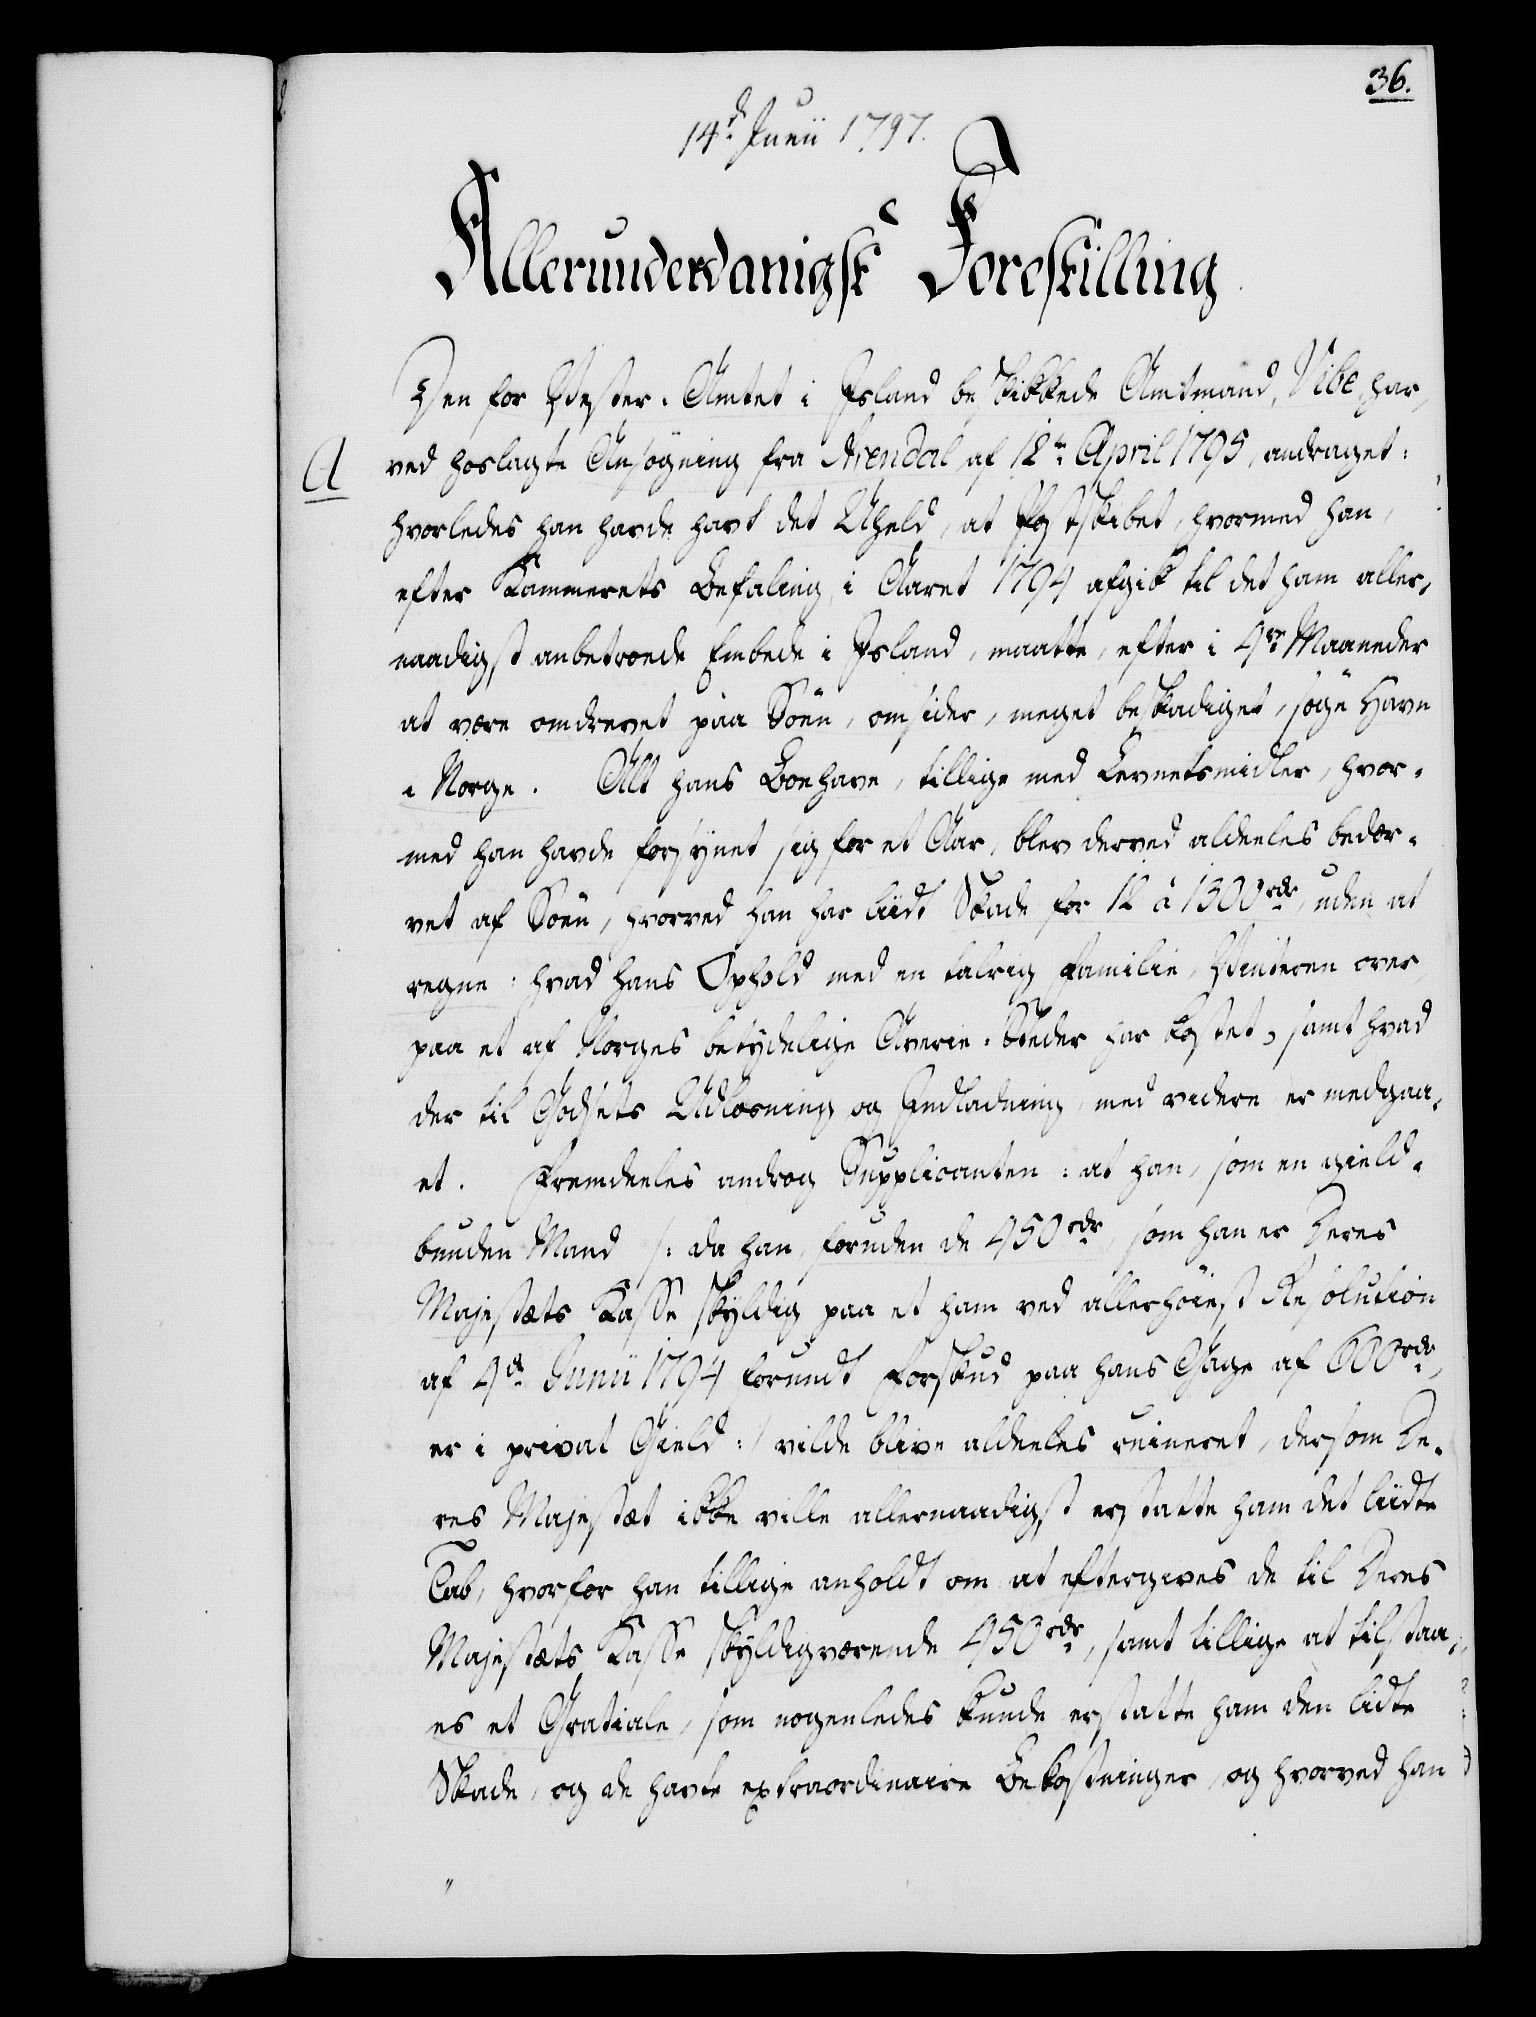 36.
14de Junii 1797.
Allerunderdanigst Forestilling
Den for Wester-Amtet i Island beskikkede Amtmand, Vibe, har,
A
ved hoslagte Ansögning fra Arendal af 12te April 1795, andraget:
hvorledes han havde havt det Uheld, at Postskibet, hvormed han,
efter Kammerets Befaling, i Aaret 1794 afgik til det ham aller-
naadigst anbetroede Embede i Island, maatte, efter i 4re Maaneder
at være omdrevet paa Söen, omsider, meget beskadiget, söge Havn
i Norge. Alt hans Boehave, tillige med Levnetsmidler, hvor-
med han havde forsynet sig for et Aar, blev derved aldeeles bedær-
vet af Söen, hvorved han har liidt Skade for 12 à 1300 rdr, uden at
regne: hvad hans Ophold med en talrig Familie, Winteren over,
paa et af Norges betydelige Averie-Steder har kostet, samt hvad
der til Godsets Udlosning og Indladning, med videre er medgaa-
et. Fremdeeles androg Supplicanten: at han, som en gield-
bunden Mand /: da han, foruden de 450 rdr, som han er Deres
Majestæts Kasse skyldig paa et ham ved allerhöiest Resolution
af 4de Junii 1794 forundt Forskud paa hans Gage af 600 rdr,
er i privat Gield :/ vilde blive aldeeles ruineret, dersom De-
res Majestæt ikke ville allernaadigst erstatte ham det liidte
Tab, hvorfor han tillige anholdt om at eftergives de til Deres
Majestæts Kasse skyldigværende 450 rdr, samt tillige at tilstaa-
es et Gratiale, som nogenledes kunde erstatte ham den lidte
Skade, og de havte extraordinaire Bekostninger, og hvorved han